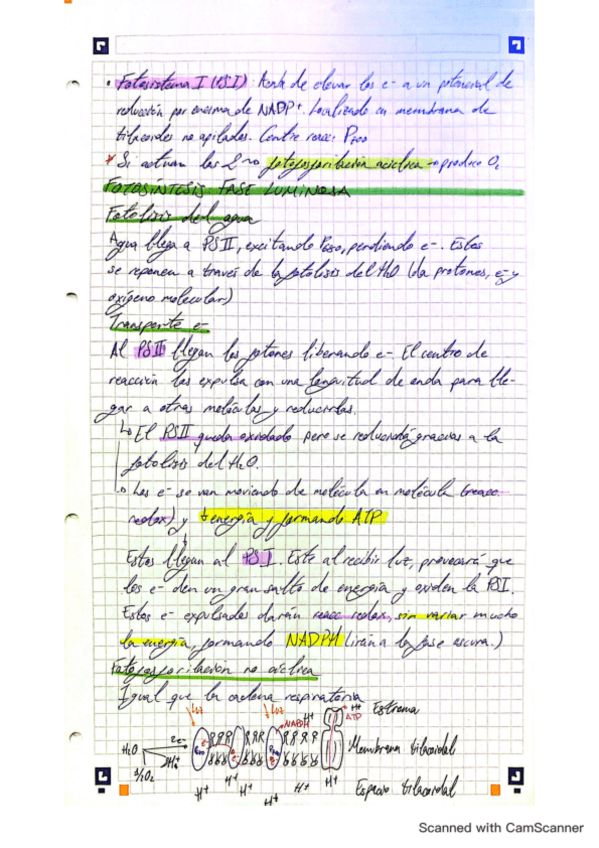 • Fotosistema I (PSI): Acaba de elevar los e- a un potencial de
reducción por encima de NADP+. Localizado en membrana de
tilacoides no apilados. Centro reacc: P700
* Si actuan los 2 → fotofosforilación acíclica → produce O2
FOTOSÍNTESIS FASE LUMINOSA
Fotolisis del agua
Agua llega a PSII, excitando P680, perdiendo e-. Estos
se reponen a través de la fotolisis del H2O (da protones, e- y
oxígeno molecular)
Transporte e-
Al PSII llegan los fotones liberando e-. El centro de
reacción los expulsa con una longitud de onda para lle-
gar a otras moléculas y reducirlas.
↳ El PSII queda oxidado pero se reducirá gracias a la
fotolisis del H2O.
↳ Los e- se van moviendo de molécula en molécula (reacc
redox) y ↓ energía y formando ATP
Estos llegan al PSI. Este al recibir luz, provocará que
los e- den un gran salto de energía y oxiden la PSI.
Estos e- expulsados darán reacc redox, sin variar mucho
la energía, formando NADPH (irán a la fase oscura.)
Fotofosforilación no cíclica
Igual que la cadena respiratoria
Luz Luz NADPH H+ H+ ATP Estroma
H2O 2e- 2H+ 1/2O2 P680 P700 Membrana tilacoidal
H+ H+ H+ H+ H+ H+ Espacio tilacoidal
Scanned with CamScanner